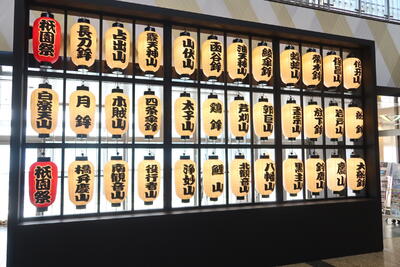 祇園祭
長刀鉾
占出山
霰天神山
山伏山
函谷鉾
油天神山
白楽天山
月鉾
木賊山
四条傘鉾
太子山
鶏鉾
芦刈山
郭巨山
放下鉾
岩戸山
祇園祭
橋弁慶山
南観音山
役行者山
浄妙山
鯉山
北観音山
八幡山
黒主山
鈴鹿山
鷹山
大船鉾